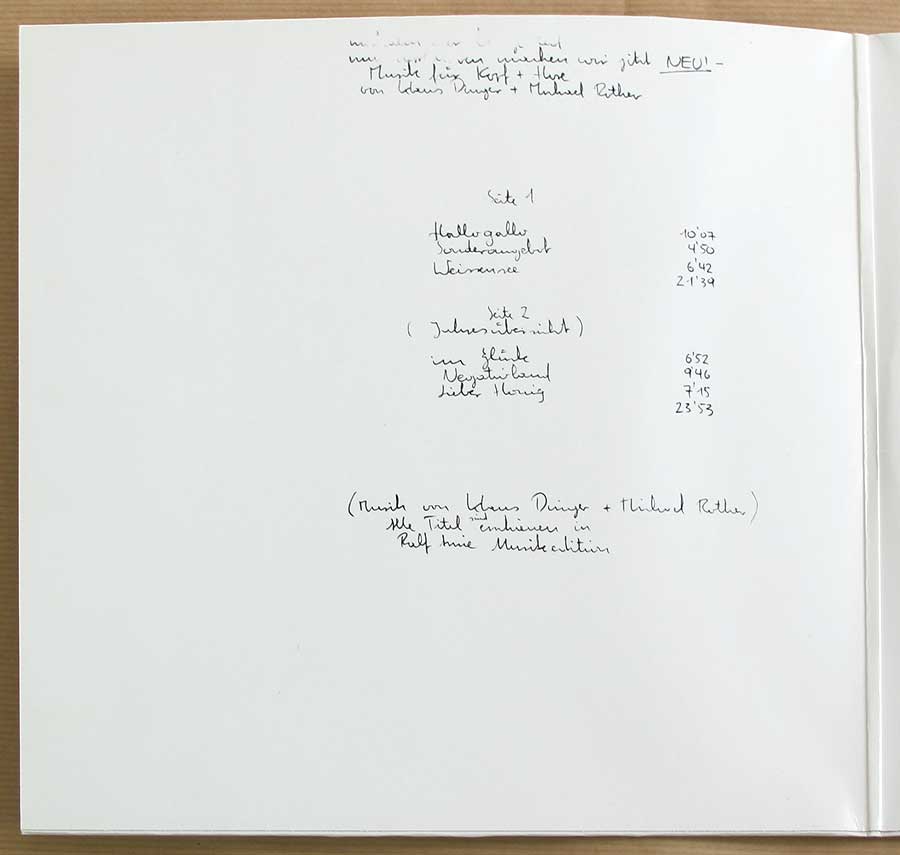 wir jetzt NEU! -
Musik für Kopf + Hose
von Klaus Dinger + Michael Rother
Seite 1
Hallogallo 10'07
Sonderangebot 4'50
Weissensee 6'42
21'39
Seite 2
( Jahresübersicht )
im Glück 6'52
Negativland 9'46
Lieber Honig 7'15
23'53
(Musik von Klaus Dinger + Michael Rother)
Alle Titel sind erschienen in
Ralf Musikedition